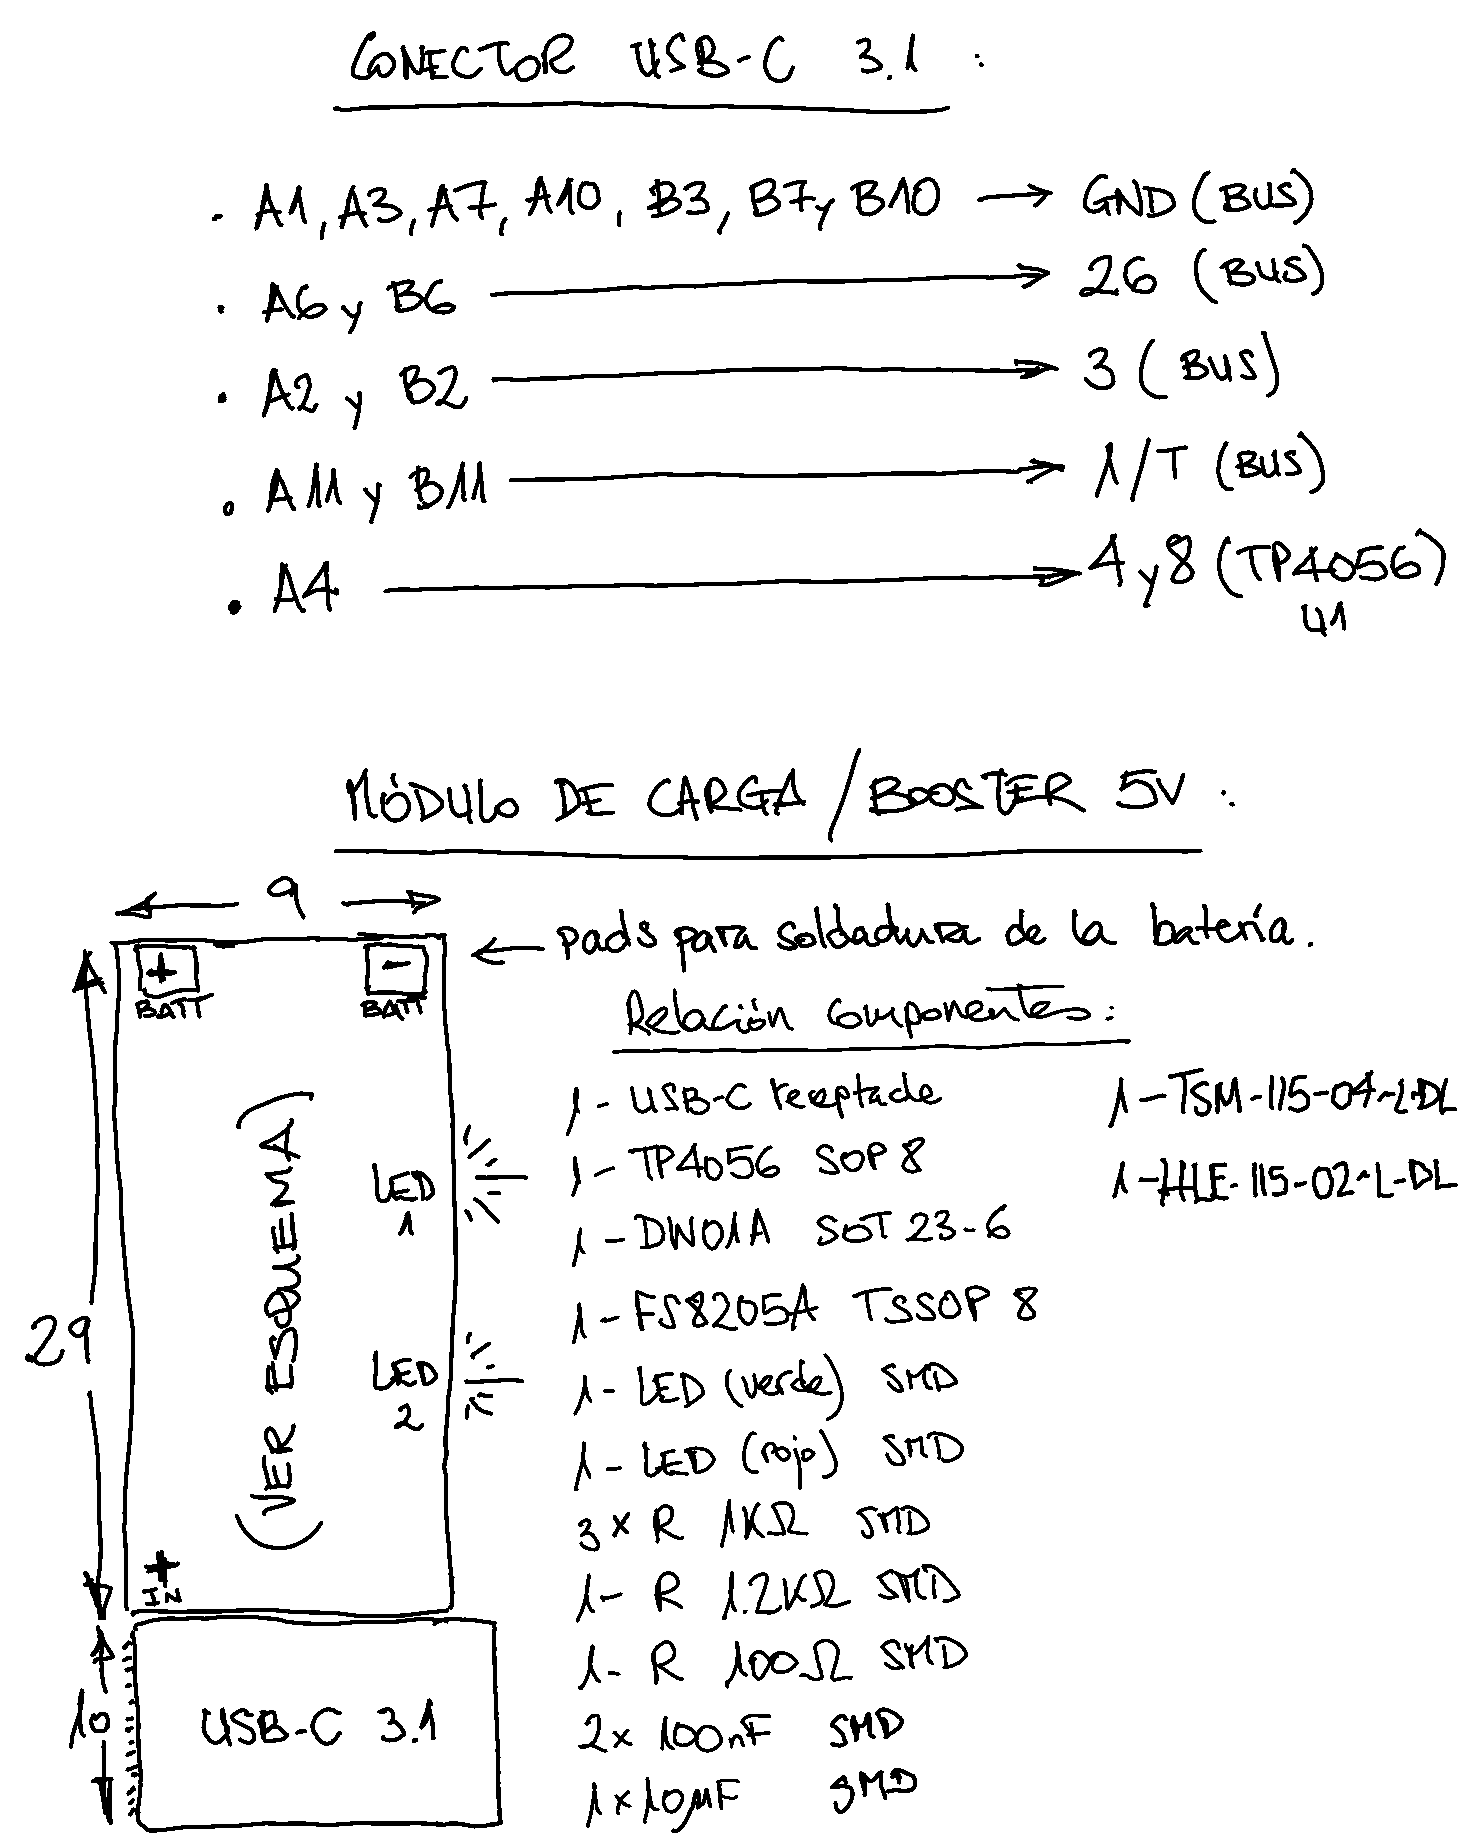 CONECTOR USB-C 3.1 :
· A1, A3, A7, A10, B3, B7 y B10 → GND (BUS)
· A6 y B6 → 26 (BUS)
· A2 y B2 → 3 (BUS)
· A11 y B11 → 1/T (BUS)
· A4 → 4 y 8 (TP4056)
U1
MÓDULO DE CARGA / BOOSTER 5V :
9
+
BATT
-
BATT
← pads para soldadura de la batería.
Relación componentes:
1 - USB-C receptacle
1 - TP4056 SOP 8
1 - DW01A SOT 23-6
1 - FS8205A TSSOP 8
1 - LED (verde) SMD
1 - LED (rojo) SMD
3 x R 1KΩ SMD
1 - R 1.2KΩ SMD
1 - R 100Ω SMD
2 x 100nF SMD
1 x 10µF SMD
1 - TSM-115-04-L-DL
1 - HLE-115-02-L-DL
(VER ESQUEMA)
LED
1
LED
2
29
+
IN
10
USB-C 3.1